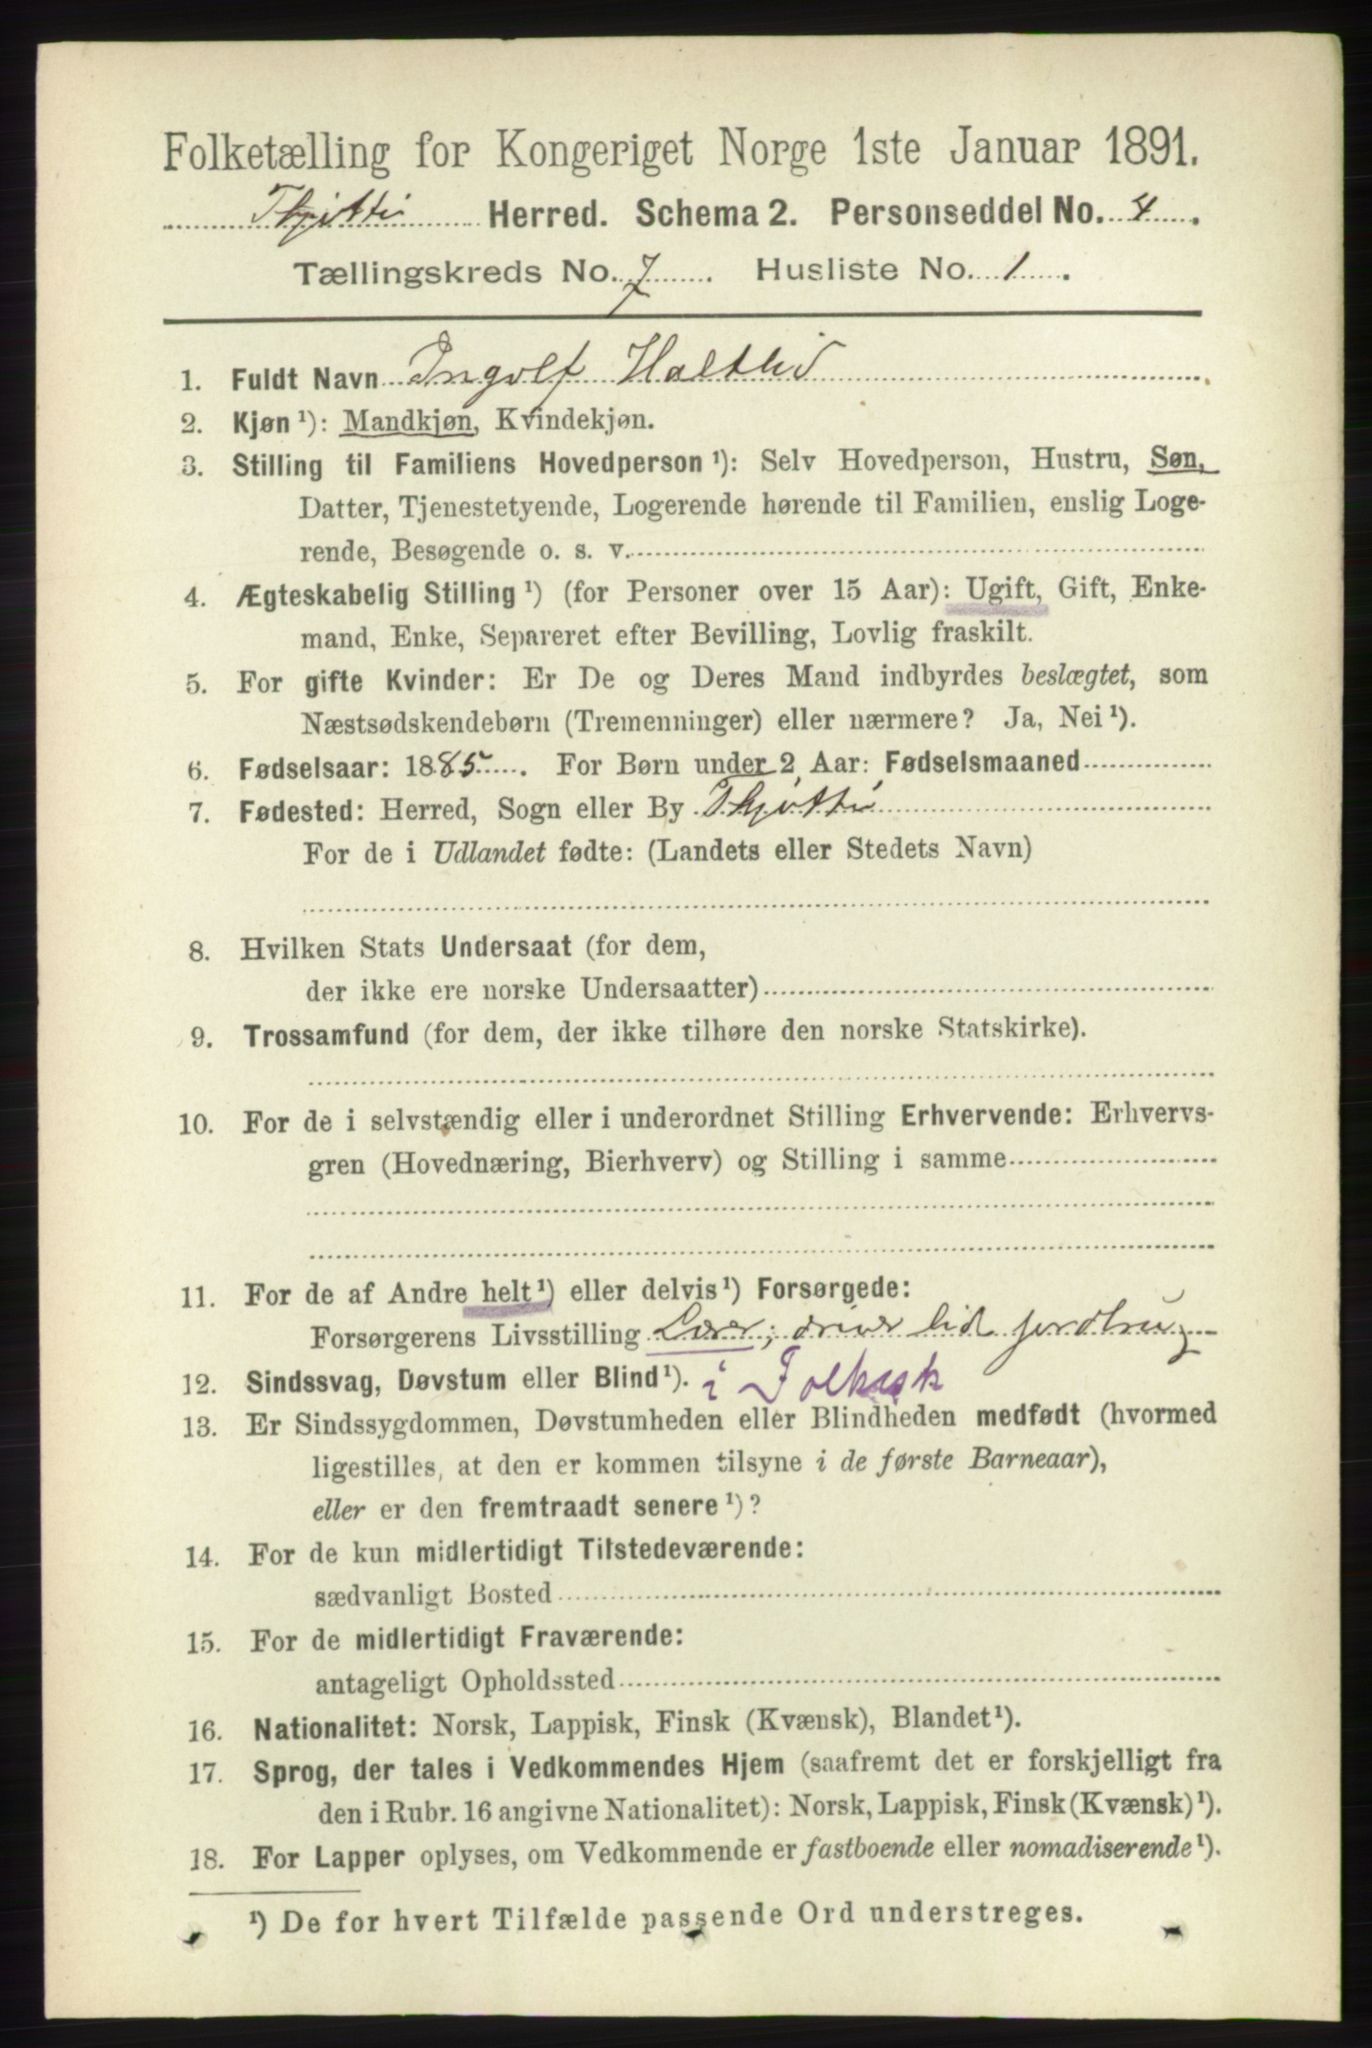 Folketælling for Kongeriget Norge 1ste Januar 1891.
Tjøttø Herred. Schema 2. Personseddel No. 4.
Tællingskreds No. 7. Husliste No. 1.
1. Fuldt Navn Ingolf Holtlid
2. Kjøn ¹): Mandkjøn, Kvindekjøn.
3. Stilling til Familiens Hovedperson ¹): Selv Hovedperson, Hustru, Søn,
Datter, Tjenestetyende, Logerende hørende til Familien, enslig Loge-
rende, Besøgende o. s. v.
4. Ægteskabelig Stilling ¹) (for Personer over 15 Aar): Ugift, Gift, Enke-
mand, Enke, Separeret efter Bevilling, Lovlig fraskilt.
5. For gifte Kvinder: Er De og Deres Mand indbyrdes beslægtet, som
Næstsødskendebørn (Tremenninger) eller nærmere? Ja, Nei ¹).
6. Fødselsaar: 1885. For Børn under 2 Aar: Fødselsmaaned
7. Fødested: Herred, Sogn eller By Tjøttø
For de i Udlandet fødte: (Landets eller Stedets Navn)
8. Hvilken Stats Undersaat (for dem,
der ikke ere norske Undersaatter)
9. Trossamfund (for dem, der ikke tilhøre den norske Statskirke).
10. For de i selvstændig eller i underordnet Stilling Erhvervende: Erhvervs-
gren (Hovednæring, Bierhverv) og Stilling i samme
11. For de af Andre helt ¹) eller delvis ¹) Forsørgede:
Forsørgerens Livsstilling Lærer; driver lidt jordbrug
12. Sindssvag, Døvstum eller Blind ¹). i Folkesk
13. Er Sindssygdommen, Døvstumheden eller Blindheden medfødt (hvormed
ligestilles, at den er kommen tilsyne i de første Barneaar),
eller er den fremtraadt senere ¹)?
14. For de kun midlertidigt Tilstedeværende:
sædvanligt Bosted
15. For de midlertidigt Fraværende:
antageligt Opholdssted
16. Nationalitet: Norsk, Lappisk, Finsk (Kvænsk), Blandet ¹).
17. Sprog, der tales i Vedkommendes Hjem (saafremt det er forskjelligt fra
den i Rubr. 16 angivne Nationalitet): Norsk, Lappisk, Finsk (Kvænsk) ¹).
18. For Lapper oplyses, om Vedkommende er fastboende eller nomadiserende ¹).
¹) De for hvert Tilfælde passende Ord understreges.